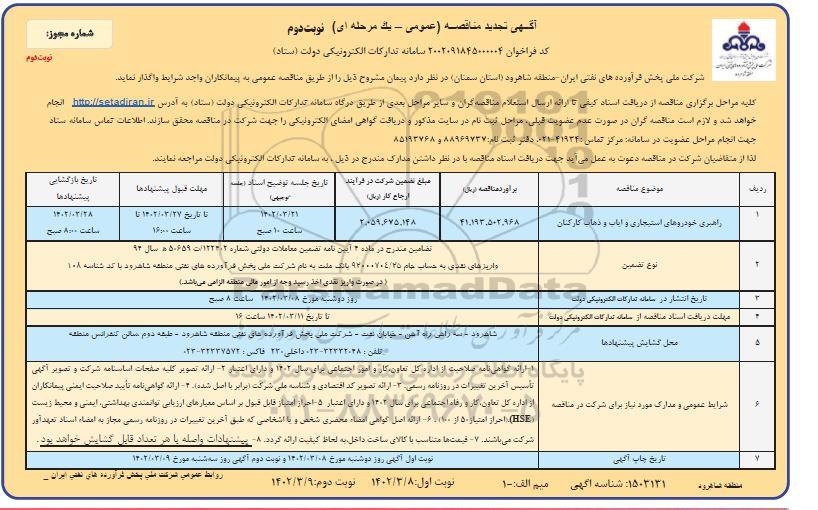 آگهی تجدید مناقصه (عمومی – یک مرحله ای) نوبت‌دوم
شماره مجوز:
نوبت‌دوم
کد فراخوان ۲۰۰۲۰۹۱۸۴۵۰۰۰۰۰۴ سامانه تدارکات الکترونیکی دولت (ستاد)
شرکت ملی پخش فرآورده های نفتی ایران
منطقه شاهرود
شرکت ملی پخش فرآورده های نفتی ایران –منطقه شاهرود (استان سمنان) در نظر دارد پیمان مشروح ذیل را از طریق مناقصه عمومی به پیمانکاران واجد شرایط واگذار نماید.
کلیه مراحل برگزاری مناقصه از دریافت اسناد کیفی تا ارائه ارسال استعلام مناقصه‌گران و سایر مراحل بعدی از طریق درگاه سامانه تدارکات الکترونیکی دولت (ستاد) به آدرس http://setadiran.ir انجام
خواهد شد و لازم است مناقصه گران در صورت عدم عضویت قبلی، مراحل ثبت نام در سایت مذکور و دریافت گواهی امضای الکترونیکی را جهت شرکت در مناقصه محقق سازند. اطلاعات تماس سامانه ستاد
جهت انجام مراحل عضویت در سامانه: مرکز تماس: ۴۱۹۳۴-۰۲۱ دفتر ثبت نام: ۸۸۹۶۹۷۳۷ و ۸۵۱۹۳۷۶۸
لذا از متقاضیان شرکت در مناقصه دعوت به عمل می‌آید جهت دریافت اسناد مناقصه با در نظر داشتن مدارک مندرج در ذیل ، به سامانه تدارکات الکترونیکی دولت مراجعه نمایند.
ردیف | موضوع مناقصه | برآوردمناقصه (ریال) | مبلغ تضمین شرکت در فرآیند ارجاع کار (ریال) | تاریخ جلسه توضیح اسناد (جلسه توجیهی) | مهلت قبول پیشنهادها | تاریخ بازگشایی پیشنهادها
۱ | راهبری خودروهای استیجاری و ایاب و ذهاب کارکنان | ۴۱,۱۹۳,۵۰۲,۹۶۸ | ۲,۰۵۹,۶۷۵,۱۴۸ | ۱۴۰۲/۰۳/۲۱ ساعت ۱۰ صبح | تا تاریخ ۱۴۰۲/۰۳/۲۷ تا ساعت ۱۶:۰۰ | ۱۴۰۲/۰۳/۲۸ ساعت ۸:۰۰ صبح
۲ | نوع تضمین | تضامین مندرج در ماده ۴ آیین نامه تضمین معاملات دولتی شماره ۱۲۳۴۰۲/ت ۵۰۶۵۹ ه سال ۹۴
واریزهای نقدی به حساب جام ۹۲۰۰۰۷۰۴/۷۵ بانک ملت به نام شرکت ملی پخش فرآورده های نفتی منطقه شاهرود با کد شناسه ۱۰۸
( در صورت واریز نقدی اخذ رسید وجه از امور مالی منطقه الزامی می‌باشد.)
۳ | تاریخ انتشار در سامانه تدارکات الکترونیکی دولت | روز دوشنبه مورخ ۱۴۰۲/۰۳/۰۸ ساعت ۸ صبح
۴ | مهلت دریافت اسناد مناقصه از سامانه تدارکات الکترونیکی دولت | تا تاریخ ۱۴۰۲/۰۳/۱۱ ساعت ۱۶
۵ | محل گشایش پیشنهادها | شاهرود – سه راهی راه آهن – خیابان نفت – شرکت ملی پخش فرآورده های نفتی منطقه شاهرود – طبقه دوم سالن کنفرانس منطقه
تلفن : ۳۲۲۳۲۰۴۸-۰۲۳ داخلی ۲۳۰ فاکس : ۳۲۲۳۷۵۷۲-۰۲۳
۶ | شرایط عمومی و مدارک مورد نیاز برای شرکت در مناقصه | ۱-ارائه گواهی‌نامه صلاحیت از اداره کل تعاون،کار و امور اجتماعی برای سال ۱۴۰۲ و دارای اعتبار ۲- ارائه تصویر کلیه صفحات اساسنامه شرکت و تصویر آگهی
تأسیس آخرین تغییرات در روزنامه رسمی. ۳- ارائه تصویر کد اقتصادی و شناسه ملی شرکت (برابر با اصل شده). ۴- ارائه گواهی‌نامه تأیید صلاحیت ایمنی پیمانکاران
از اداره کل تعاون،کار و رفاه اجتماعی برای سال ۱۴۰۲ و دارای اعتبار ۵-احراز امتیاز قابل قبول بر اساس معیارهای ارزیابی توانمندی بهداشتی، ایمنی و محیط زیست
(HSE)(احراز امتیاز۵۰ از ۱۰۰) . ۶- ارائه اصل گواهی امضاء محضری شخص و یا اشخاصی که طبق آخرین تغییرات در روزنامه رسمی مجاز به امضاء اسناد تعهدآور
شرکت می‌باشند. ۷- قیمت‌ها متناسب با کالای ساخت داخل،به لحاظ کیفیت ارائه گردد. ۸- پیشنهادات واصله با هر تعداد قابل گشایش خواهد بود .
۷ | تاریخ چاپ آگهی | نوبت اول آگهی روز دوشنبه مورخ ۱۴۰۲/۰۳/۰۸ و نوبت دوم آگهی روز سه‌شنبه مورخ ۱۴۰۲/۰۳/۰۹
منطقه شاهرود شناسه آگهی :۱۵۰۳۱۳۱ میم الف:-۱ نوبت اول:۱۴۰۲/۳/۸ نوبت دوم:۱۴۰۲/۳/۹ روابط عمومی شرکت ملی پخش فرآورده های نفتی ایران _
ParsNamadData
پایگاه اطلاع رسانی مناقصه و مزایده
۰۲۱-۸۸۳۴۹۶۷۰-۵